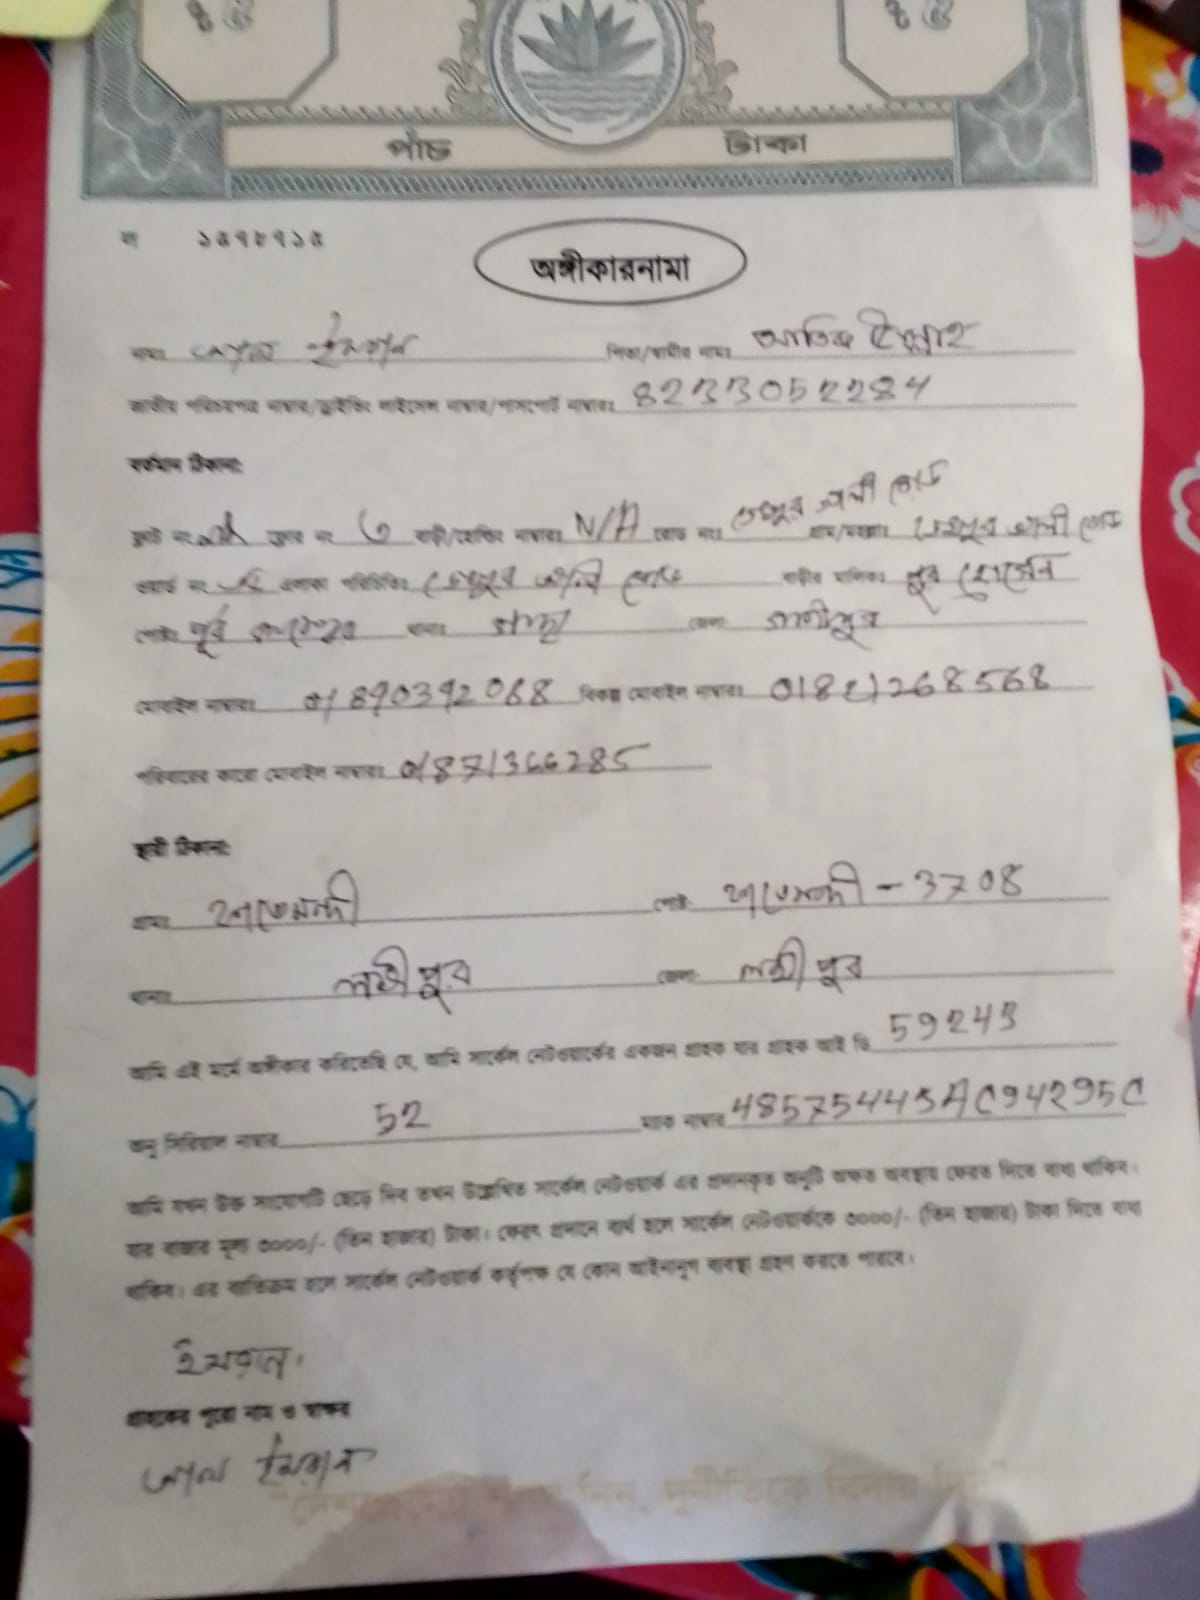 ১৫ ১৫
পাঁচ টাকা
১৫৭৮৭১৫
অঙ্গীকারনামা
নামঃ ইমরান পিতা/স্বামীর নামঃ
জাতীয় পরিচয়পত্র নাম্বার/ড্রাইভিং লাইসেন্স নাম্বার/পাসপোর্ট নাম্বারঃ 8233052284
বর্তমান ঠিকানা:
ফ্লাট নং ফ্লোর নং ৩ বাড়ী/হোল্ডিং নাম্বারঃ N/A রোড নংঃ গ্রাম/মহল্লাঃ
ওয়ার্ড নং এলাকা পরিচিতিঃ বাড়ীর মালিকঃ নুর হোসেন
পোষ্টঃ পূর্ব থানাঃ জেলাঃ গাজীপুর
মোবাইল নাম্বারঃ 01890392068 বিকল্প মোবাইল নাম্বারঃ
পরিবারের কারো মোবাইল নাম্বারঃ 01871366285
স্থায়ী ঠিকানা:
গ্রামঃ পোষ্টঃ - 3708
থানাঃ লক্ষীপুর জেলাঃ লক্ষীপুর
আমি এই মর্মে অঙ্গীকার করিতেছি যে, আমি সার্কেল নেটওয়ার্কের একজন গ্রাহক যার গ্রাহক আই ডি 59243
অনু সিরিয়াল নাম্বার 52 ম্যাক নাম্বার 485754435AC94295C
আমি যখন উক্ত সংযোগটি ছেড়ে দিব তখন উল্লেখিত সার্কেল নেটওয়ার্ক এর প্রদানকৃত অনুটি অক্ষত অবস্থায় ফেরত দিতে বাধ্য থাকিব।
যার বাজার মূল্য ৩০০০/- (তিন হাজার) টাকা। ফেরৎ প্রদানে ব্যর্থ হলে সার্কেল নেটওয়ার্ককে ৩০০০/- (তিন হাজার) টাকা দিতে বাধ্য
থাকিব। এর ব্যতিক্রম হলে সার্কেল নেটওয়ার্ক কর্তৃপক্ষ যে কোন আইনানুগ ব্যবস্থা গ্রহণ করতে পারবে।
ইমরান
গ্রাহকের পুরো নাম ও স্বাক্ষর
ইমরান
দিন, দুর্নীতিকে বিদায় দিন"